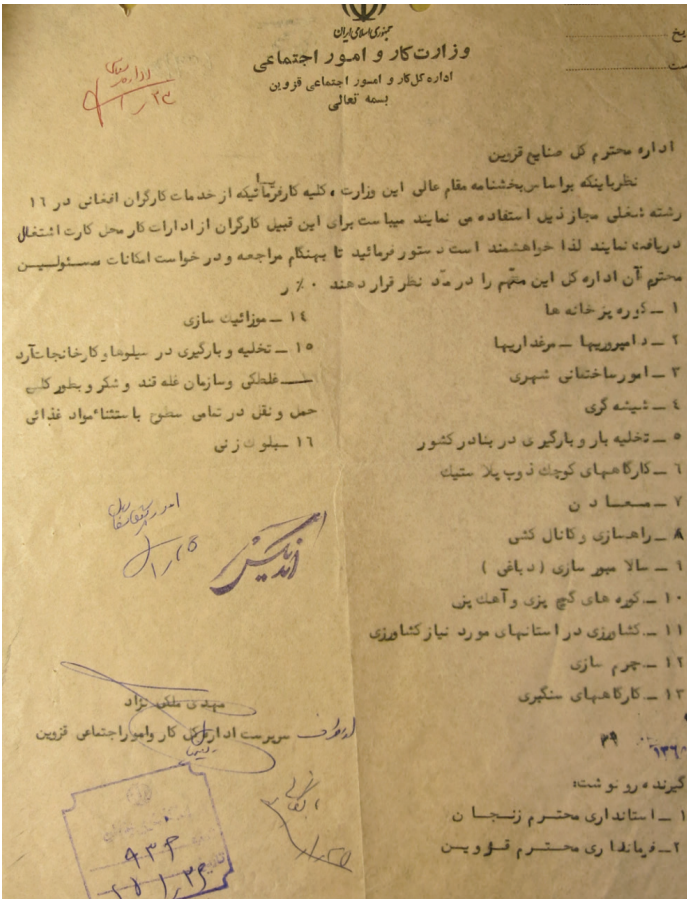 جمهوری اسلامی ایران
وزارت کار و امور اجتماعی
اداره کل کار و امور اجتماعی قزوین
بسمه تعالی
اداره محترم کل صنایع قزوین
نظر باینکه براساس بخشنامه مقام عالی این وزارت ، کلیه کارفرمائیکه از خدمات کارگران افغانی در ١٦
رشته شغلی مجاز ذیل استفاده می نمایند میبایست برای این قبیل کارگران از ادارات کار محل کارت اشتغال
دریافت نمایند لذا خواهشمند است دستور فرمائید تا بهنگام مراجعه و درخواست امکانات مسئولین
محترم آن اداره کل این مهم را در مد نظر قرار دهند
١ ــ کوره پزخانه ها
٢ ــ دامپروریها ــ مرغداریها
٣ ــ امور ساختمانی شهری
٤ ــ شیشه گری
٥ ــ تخلیه بار و بارگیری در بنادر کشور
٦ ــ کارگاههای کوچک ذوب پلاستیک
٧ ــ معادن
٨ ــ راهسازی و کانال کشی
٩ ــ سالامبور سازی ( دباغی )
١٠ ــ کوره های گچ پزی و آهک پزی
١١ ــ کشاورزی در استانهای مورد نیاز کشاورزی
١٢ ــ چرم سازی
١٣ ــ کارگاههای سنگبری
١٤ ــ موزائیک سازی
١٥ ــ تخلیه و بارگیری در سیلوها و کارخانجات آرد
غلطکی و سازمان غله قند و شکر و بطور کلی
حمل و نقل در تمامی سطوح باستثناء مواد غذائی
١٦ ــ بلوک زنی
مهدی ملکی نژاد
از طرف سرپرست اداره کل کار و امور اجتماعی قزوین
گیرنده رونوشت:
١ ــ استانداری محترم زنجان
٢ ــ فرمانداری محترم قزوین